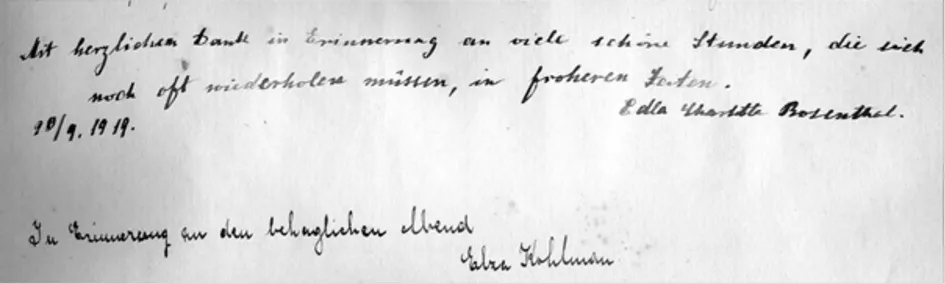 Mit herzlichem Dank in Erinnerung an viele schöne Stunden, die sich
noch oft wiederholen müssen, in froheren Zeiten.
Edla Charlotte Rosenthal.
20/9. 1919.
In Erinnerung an den behaglichen Abend
Elza Kohlmann